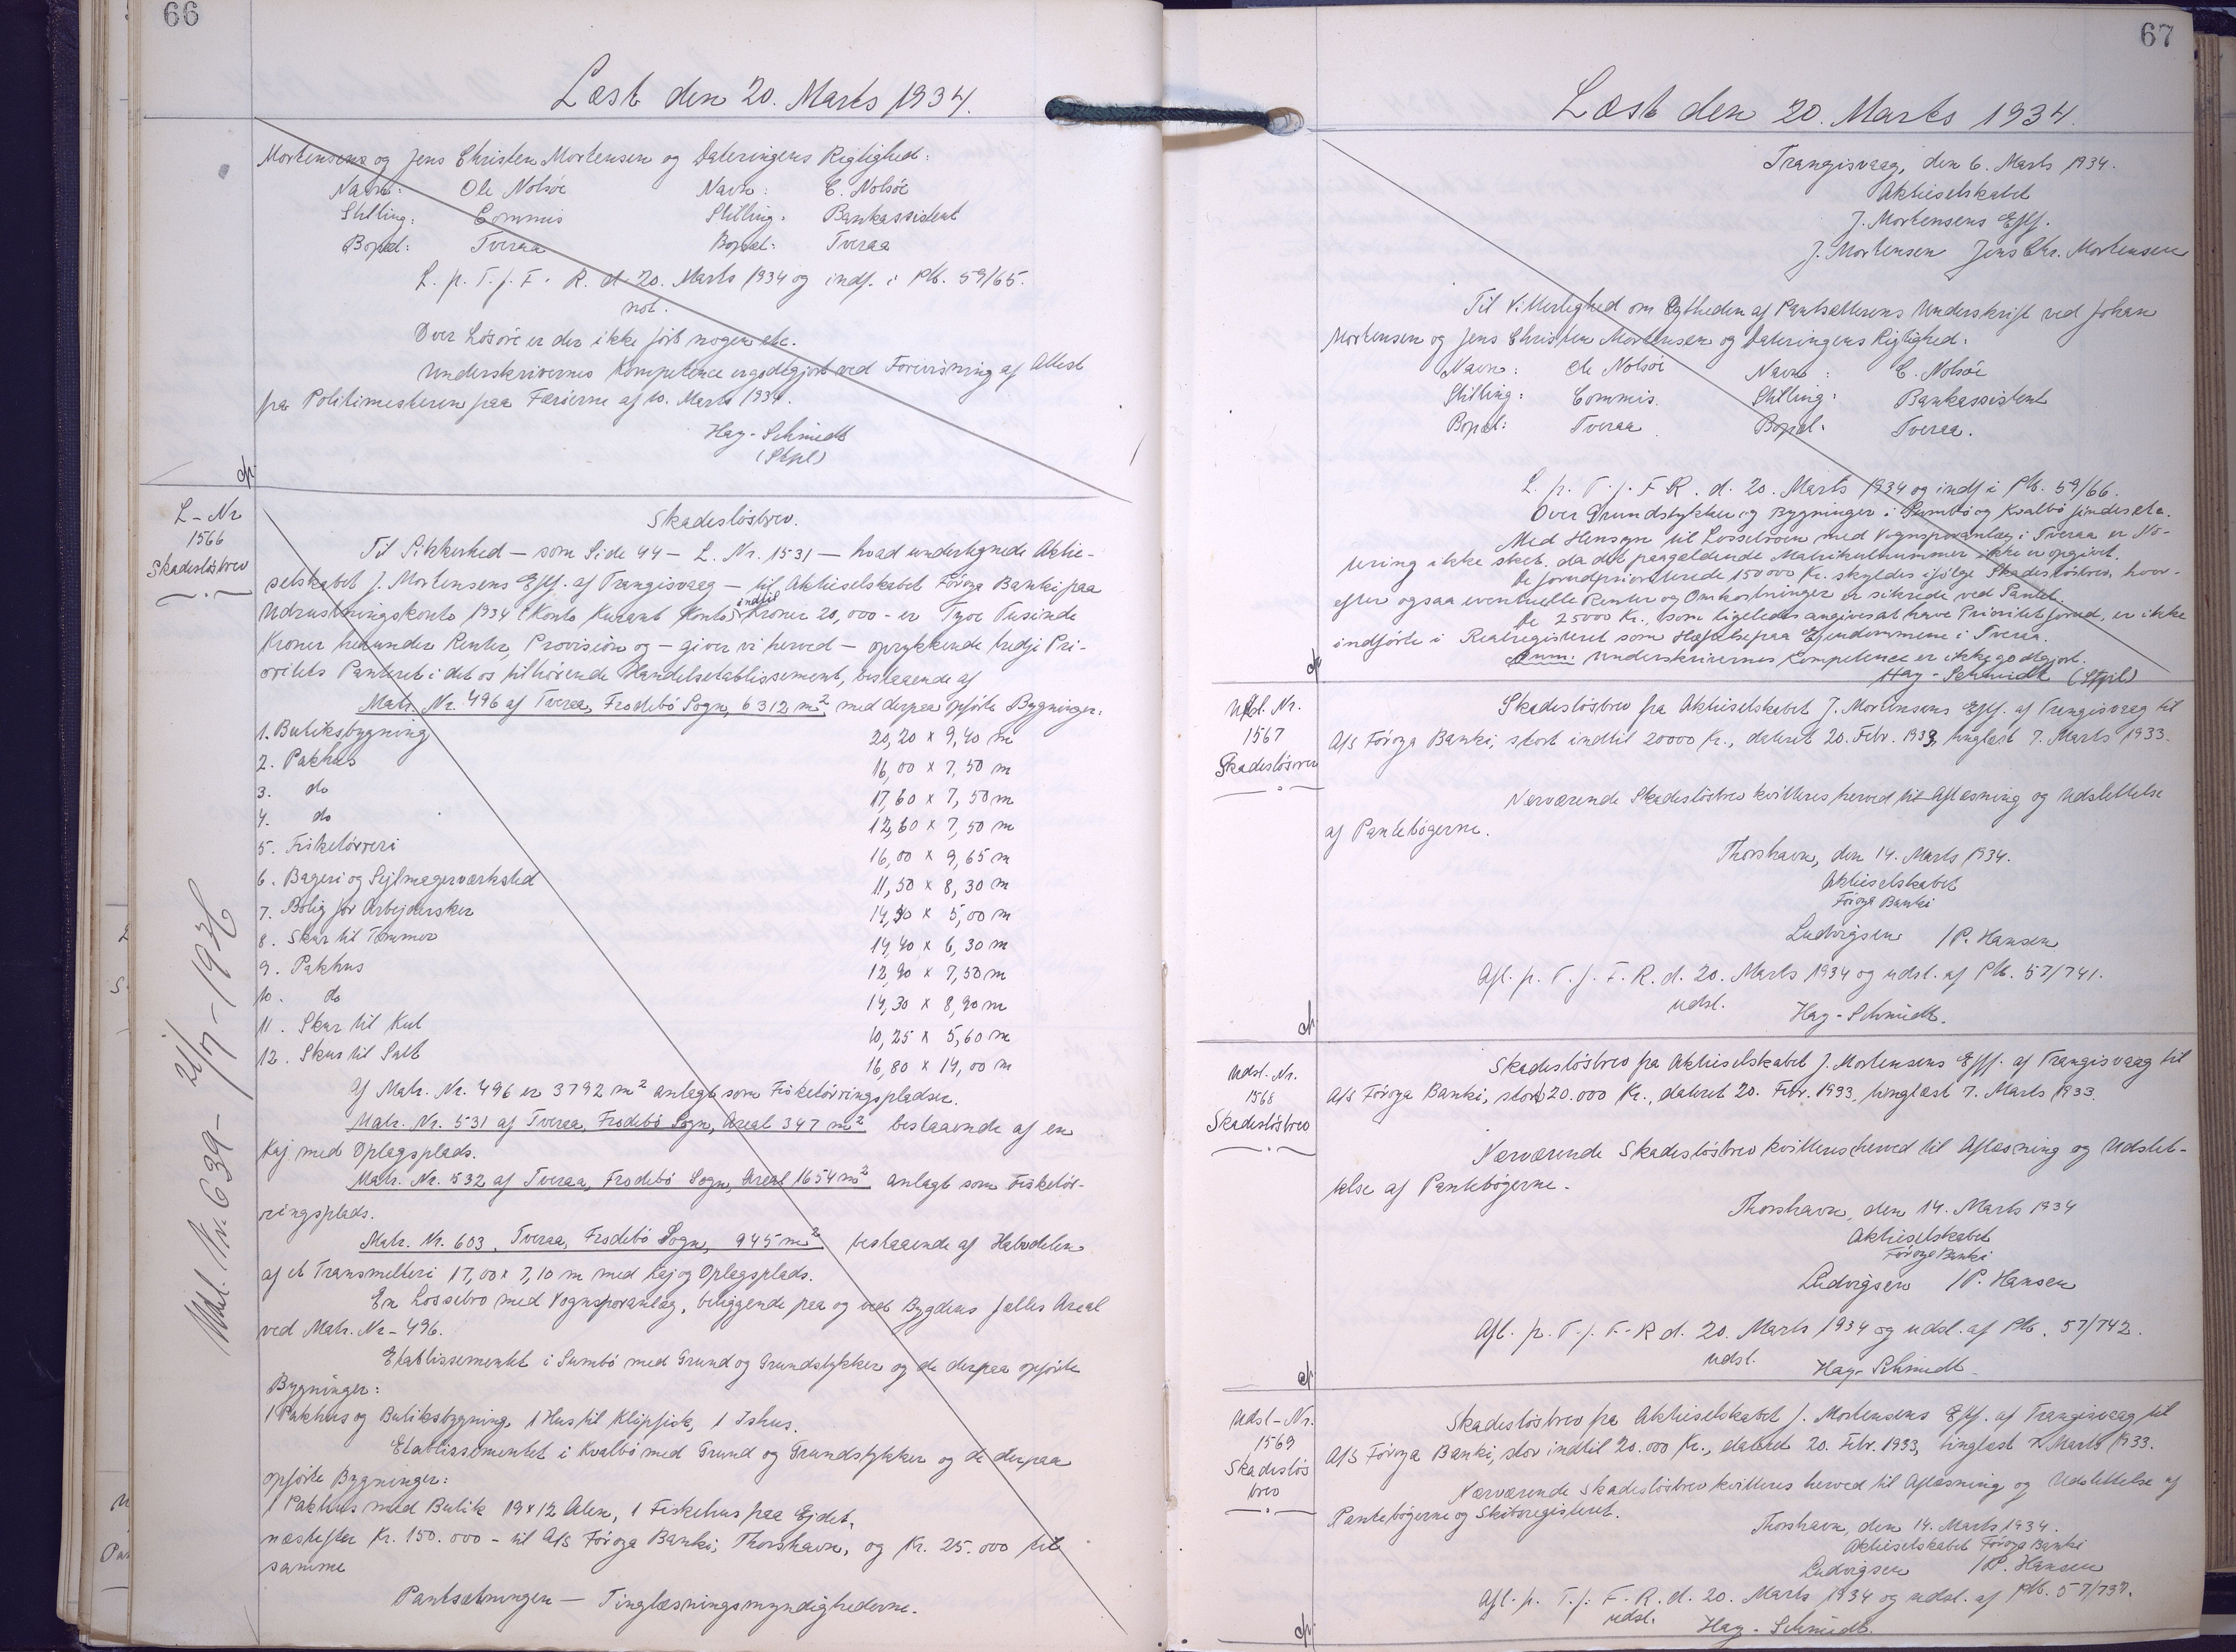 66
Læst den 20. Marts 1934.
Mortensens og Jens Christen Mortensen og Dateringens Rigtighed:
Navn: Ole Nolsöe Navn: C. Nolsöe
Stilling: Commis Stilling: Bankassistent
Bopæl: Tveraa Bopæl: Tveraa
L. p. T. f. F. R. d. 20. Marts 1934 og indf. i Ptb. 59/65.
not.
Over Lösöre er der ikke fört nogen etc.
Underskrivernes Kompetence er godtgjort ved Forevisning af Attest
fra Politimesteren paa Færöerne af 10. Marts 1934.
Hag-Schmidt
(Stpl)
L-Nr
1566
Skadeslösbrev
Skadeslösbrev.
Til Sikkerhed - som Side 44 - L. Nr. 1531 - hvad undertegnede Aktie-
selskabet J. Mortensens Eftf. af Trangisvaag - til Aktieselskabet Föroya Banki paa
Udrustningskonto 1934 (Konto Kurant Konto) indtil Kroner 20,000 - er Tyve Tusinde
Kroner herunder Renter, Provision og - giver vi herved - oprykkende tredje Pri-
oritets Panteret i det os tilhörende Handelsetablissement, bestaaende af
Matr. Nr. 496 af Tveraa, Frodebö Sogn, 6312 m² med derpaa opförte Bygninger:
1. Butiksbygning 20,20 x 9,40 m
2. Pakhus 16,00 x 7,50 m
3. do 17,60 x 7,50 m
4. do 12,60 x 7,50 m
5. Fisketörreri 16,00 x 9,65 m
6. Bageri og Sejlmagerværksted 11,50 x 8,30 m
7. Bolig for Arbejdersker 14,30 x 5,00 m
8. Skur til Tömmer 14,40 x 6,30 m
9. Pakhus 12,90 x 7,50 m
10. do 14,30 x 8,90 m
11. Skur til Kul 10,25 x 5,60 m
12. Skur til Salt 16,80 x 14,00 m
Af Matr. Nr. 496 er 3792 m² anlagt som Fisketörringspladser.
Matr. Nr. 531 af Tveraa, Frodebö Sogn, Areal 347 m² bestaaende af en
Kaj med Oplagsplads.
Matr. Nr. 532 af Tveraa, Frodebö Sogn, Areal 1654 m² anlagt som Fisketör-
ringsplads.
Matr. Nr. 603, Tveraa, Frodebö Sogn, 945 m² bestaaende af Halvdelen
af et Transmelteri 17,00 x 7,10 m med Kaj og Oplagsplads.
En Lossebro med Vognsporanlæg, beliggende paa og ved Bygdens fælles Areal
ved Matr. Nr - 496.
Etablissementet i Sumbö med Grund og Grundstykker og de derpaa opförte
Bygninger:
1 Pakhus og Butiksbygning, 1 Hus til Klipfisk, 1 Ishus.
Etablissementet i Kvalbö med Grund og Grundstykker og de derpaa
opförte Bygninger:
1 Pakhus med Butik 19 x 12 Alen, 1 Fiskehus paa Ejdet,
næstefter Kr. 150.000 - til A/S Föroya Banki, Thorshavn, og Kr. 25.000 til
samme
Pantsætningen - Tinglæsningsmyndighederne.
Udsl. Nr. 639 - 21/7 - 1936
67
Læst den 20. Marts 1934.
Trangisvaag, den 6. Marts 1934.
Aktieselskabet
J. Mortensens Eftf.
J. Mortensen Jens Chr. Mortensen
Til Vitterlighed om Ægtheden af Pantsætterens Underskrift ved Johan
Mortensen og Jens Christen Mortensen og Dateringens Rigtighed:
Navn: Ole Nolsöe Navn: C. Nolsöe
Stilling: Commis. Stilling: Bankassistent
Bopæl: Tveraa Bopæl: Tveraa.
L. p. T. f. F. R. d. 20. Marts 1934 og indf i Ptb. 59/66.
Over Grundstykker og Bygninger i Sumbö og Kvalbö findes etc.
Med Hensyn til Lossebroen med Vognsporanlæg i Tveraa er No-
tering ikke sket, da det paagældende Matrikulnummer ikke er opgivet.
De forudprioriterede 150000 Kr. skyldes ifölge Skadeslösbrev, hvor-
efter ogsaa eventuelle Renter og Omkostninger er sikrede ved Pantet.
De 25000 Kr., som ligeledes angives at have Prioritet forud, er ikke
indförte i Realregisteret som Hæftelse paa Ejendommene i Tveraa.
Anm: Underskrivernes Kompetence er ikke godtgjort.
Hag-Schmidt (Stpl)
Udsl. Nr.
1567
Skadeslösbrev
Skadeslösbrev fra Aktieselskabet J. Mortensens Eftf. af Trangisvaag til
A/S Föroya Banki, stort indtil 20000 Kr., dateret 20. Febr. 1933, tinglæst 7. Marts 1933.
Nærværende Skadeslösbrev kvitteres herved til Aflæsning og Udslettelse
af Pantebögerne.
Thorshavn, den 14. Marts 1934.
Aktieselskabet
Föroya Banki
Ludvigsen /P. Hansen
Afl. p. T. f. F. R. d. 20. Marts 1934 og udsl. af Ptb. 57/741.
udsl. Hag-Schmidt.
Udsl. Nr.
1568
Skadeslösbrev
Skadeslösbrev fra Aktieselskabet J. Mortensens Eftf. af Trangisvaag til
A/S Föroya Banki, stort 20.000 Kr., dateret 20. Febr. 1933, tinglæst 7. Marts 1933.
Nærværende Skadeslösbrev kvitteres herved til Aflæsning og Udslet-
telse af Pantebögerne.
Thorshavn, den 14. Marts 1934
Aktieselskabet
Föroya Banki
Ludvigsen /P. Hansen
Afl. p. T. f. F. R d. 20. Marts 1934 og udsl. af Ptb. 57/742.
udsl. Hag-Schmidt.
Udsl-Nr.
1569
Skadeslös
brev
Skadeslösbrev fra Aktieselskabet J. Mortensens Eftf. af Trangisvaag til
A/S Föroya Banki, stor indtil 20.000 Kr., dateret 20. Febr. 1933, tinglæst 7. Marts 1933.
Nærværende Skadeslösbrev kvitteres herved til Aflæsning og Udslettelse af
Pantebögerne og Skibsregisteret.
Thorshavn, den 14. Marts 1934.
Aktieselskabet Föroya Banki
Ludvigsen /P. Hansen
Afl. p. T. f. F. R. d. 20. Marts 1934 og udsl. af Ptb. 57/737.
udsl. Hag-Schmidt.